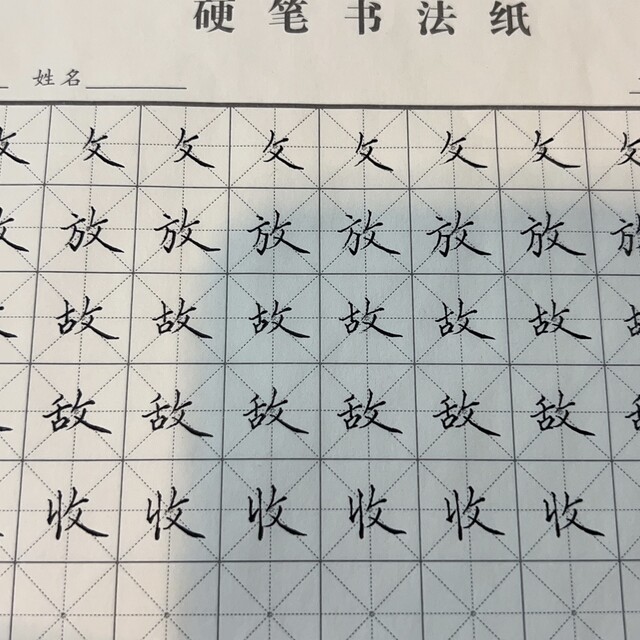 硬笔书法纸
姓名
攵攵攵攵攵攵
放放放放放放
故故故故故故
敌敌敌敌敌敌
收收收收收收